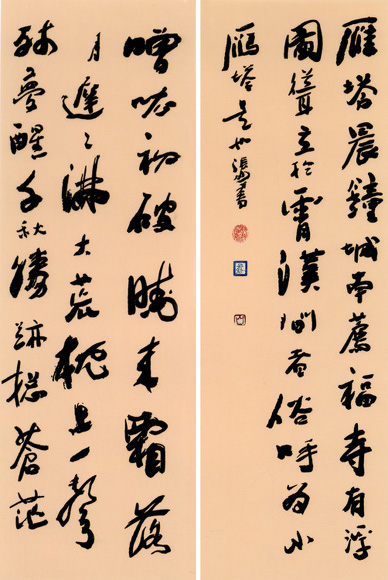 雁塔晨鐘城南薦福寺有浮
圖聳立於霄漢間者俗呼為小
鴈塔是也張書
噌吰初破曉來霜落
月遲々滿大荒枕上一聲
殘夢醒千秋勝跡總蒼茫